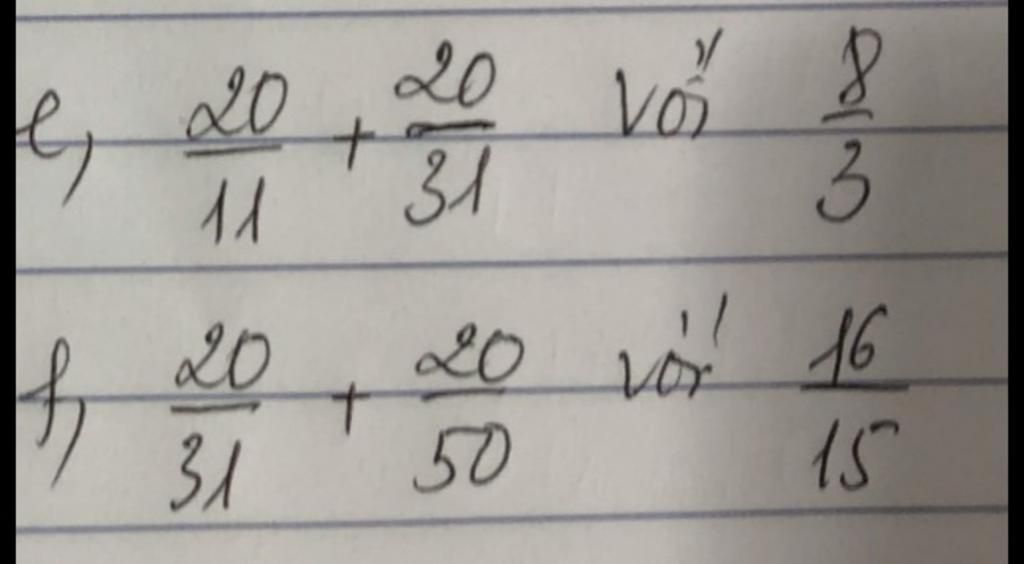 e, 20/11 + 20/31 với 8/3
f, 20/31 + 20/50 với 16/15